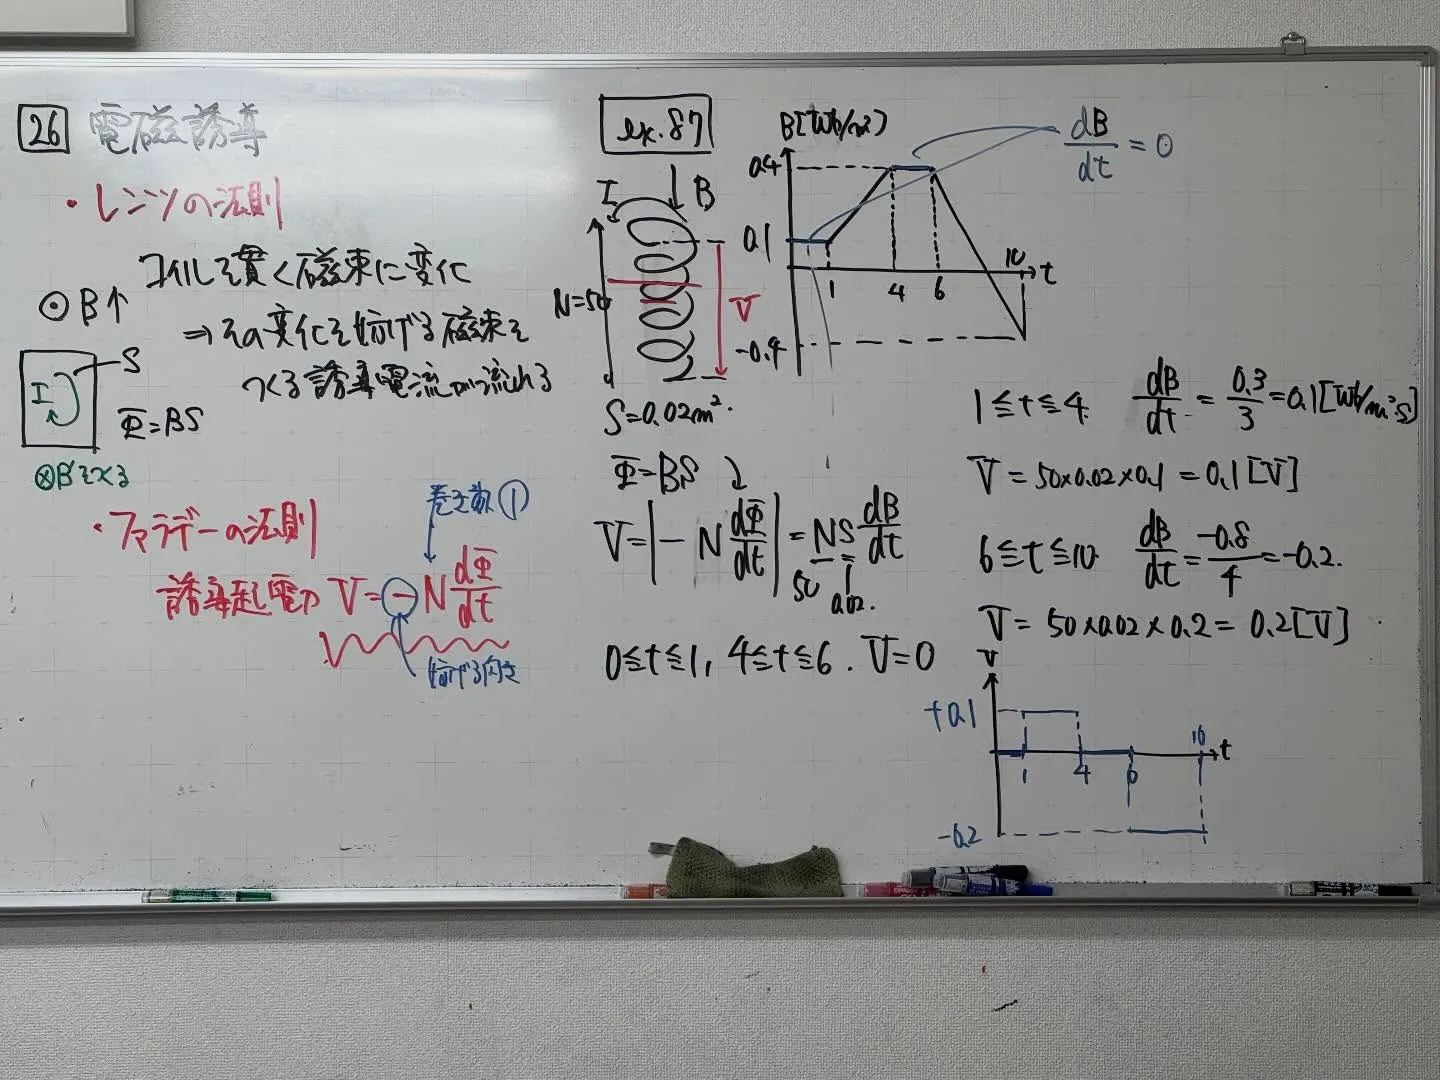 26 電磁誘導
・レンツの法則
コイルを貫く磁束に変化
⇒その変化を妨げる磁束を
つくる誘導電流が流れる
⊙B↑
S
I
Φ=BS
⊗B'をつくる
・ファラデーの法則
巻き数①
誘導起電力 V=-N dΦ/dt
妨げる向き
ex.87
I
B
N=50
V
S=0.02m².
Φ=BS
V=|-N dΦ/dt|=NS dB/dt
50
0.02.
0≦t≦1, 4≦t≦6. V=0
B[Wb/m²]
0.4
0.1
-0.4
1 4 6 10 t
dB/dt = 0
1≦t≦4. dB/dt = 0.3/3 = 0.1[Wb/m²s]
V = 50×0.02×0.1 = 0.1[V]
6≦t≦10 dB/dt = -0.8/4 = -0.2.
V = 50×0.02×0.2 = 0.2[V]
V
+0.1
1 4 6 10 t
-0.2